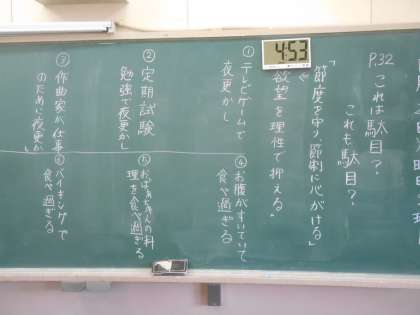 P.32
これは駄目?
これも駄目?
「節度を守り節制に心がける」
欲望を理性で抑える
4:53
①テレビゲームで
夜更かし
②定期試験
勉強で夜更かし
③作曲家が仕事
のために夜更かし
④お腹がすいていて
食べ過ぎる
⑤おばあちゃんの料
理を食べ過ぎる
⑥バイキングで
食べ過ぎる